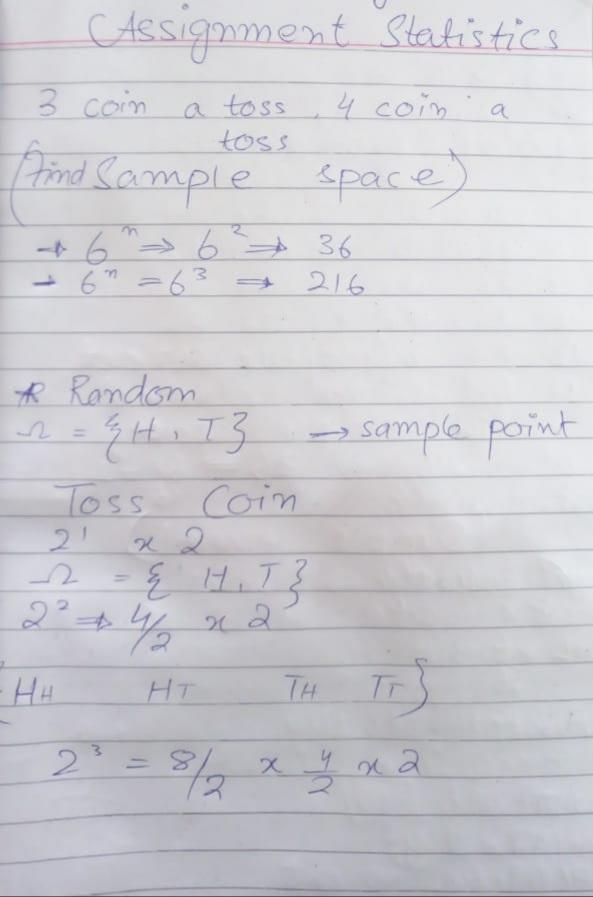 Assignment Statistics
3 coin a toss, 4 coin a
toss
(find Sample space)
→ 6ⁿ ⇒ 6² ⇒ 36
→ 6ⁿ = 6³ ⇒ 216
* Random
Ω = {H, T} → sample point
Toss Coin
2¹ x 2
Ω = { H, T}
2² ⇒ 4/2 x 2
{HH HT TH TT}
2³ = 8/2 x 4/2 x 2